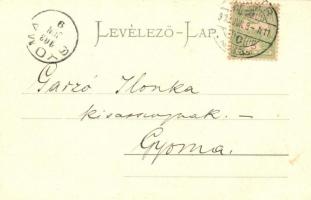 LEVÉLEZŐ-LAP.
Garzó Ilonka
kisasszonynak.-
Gyoma.